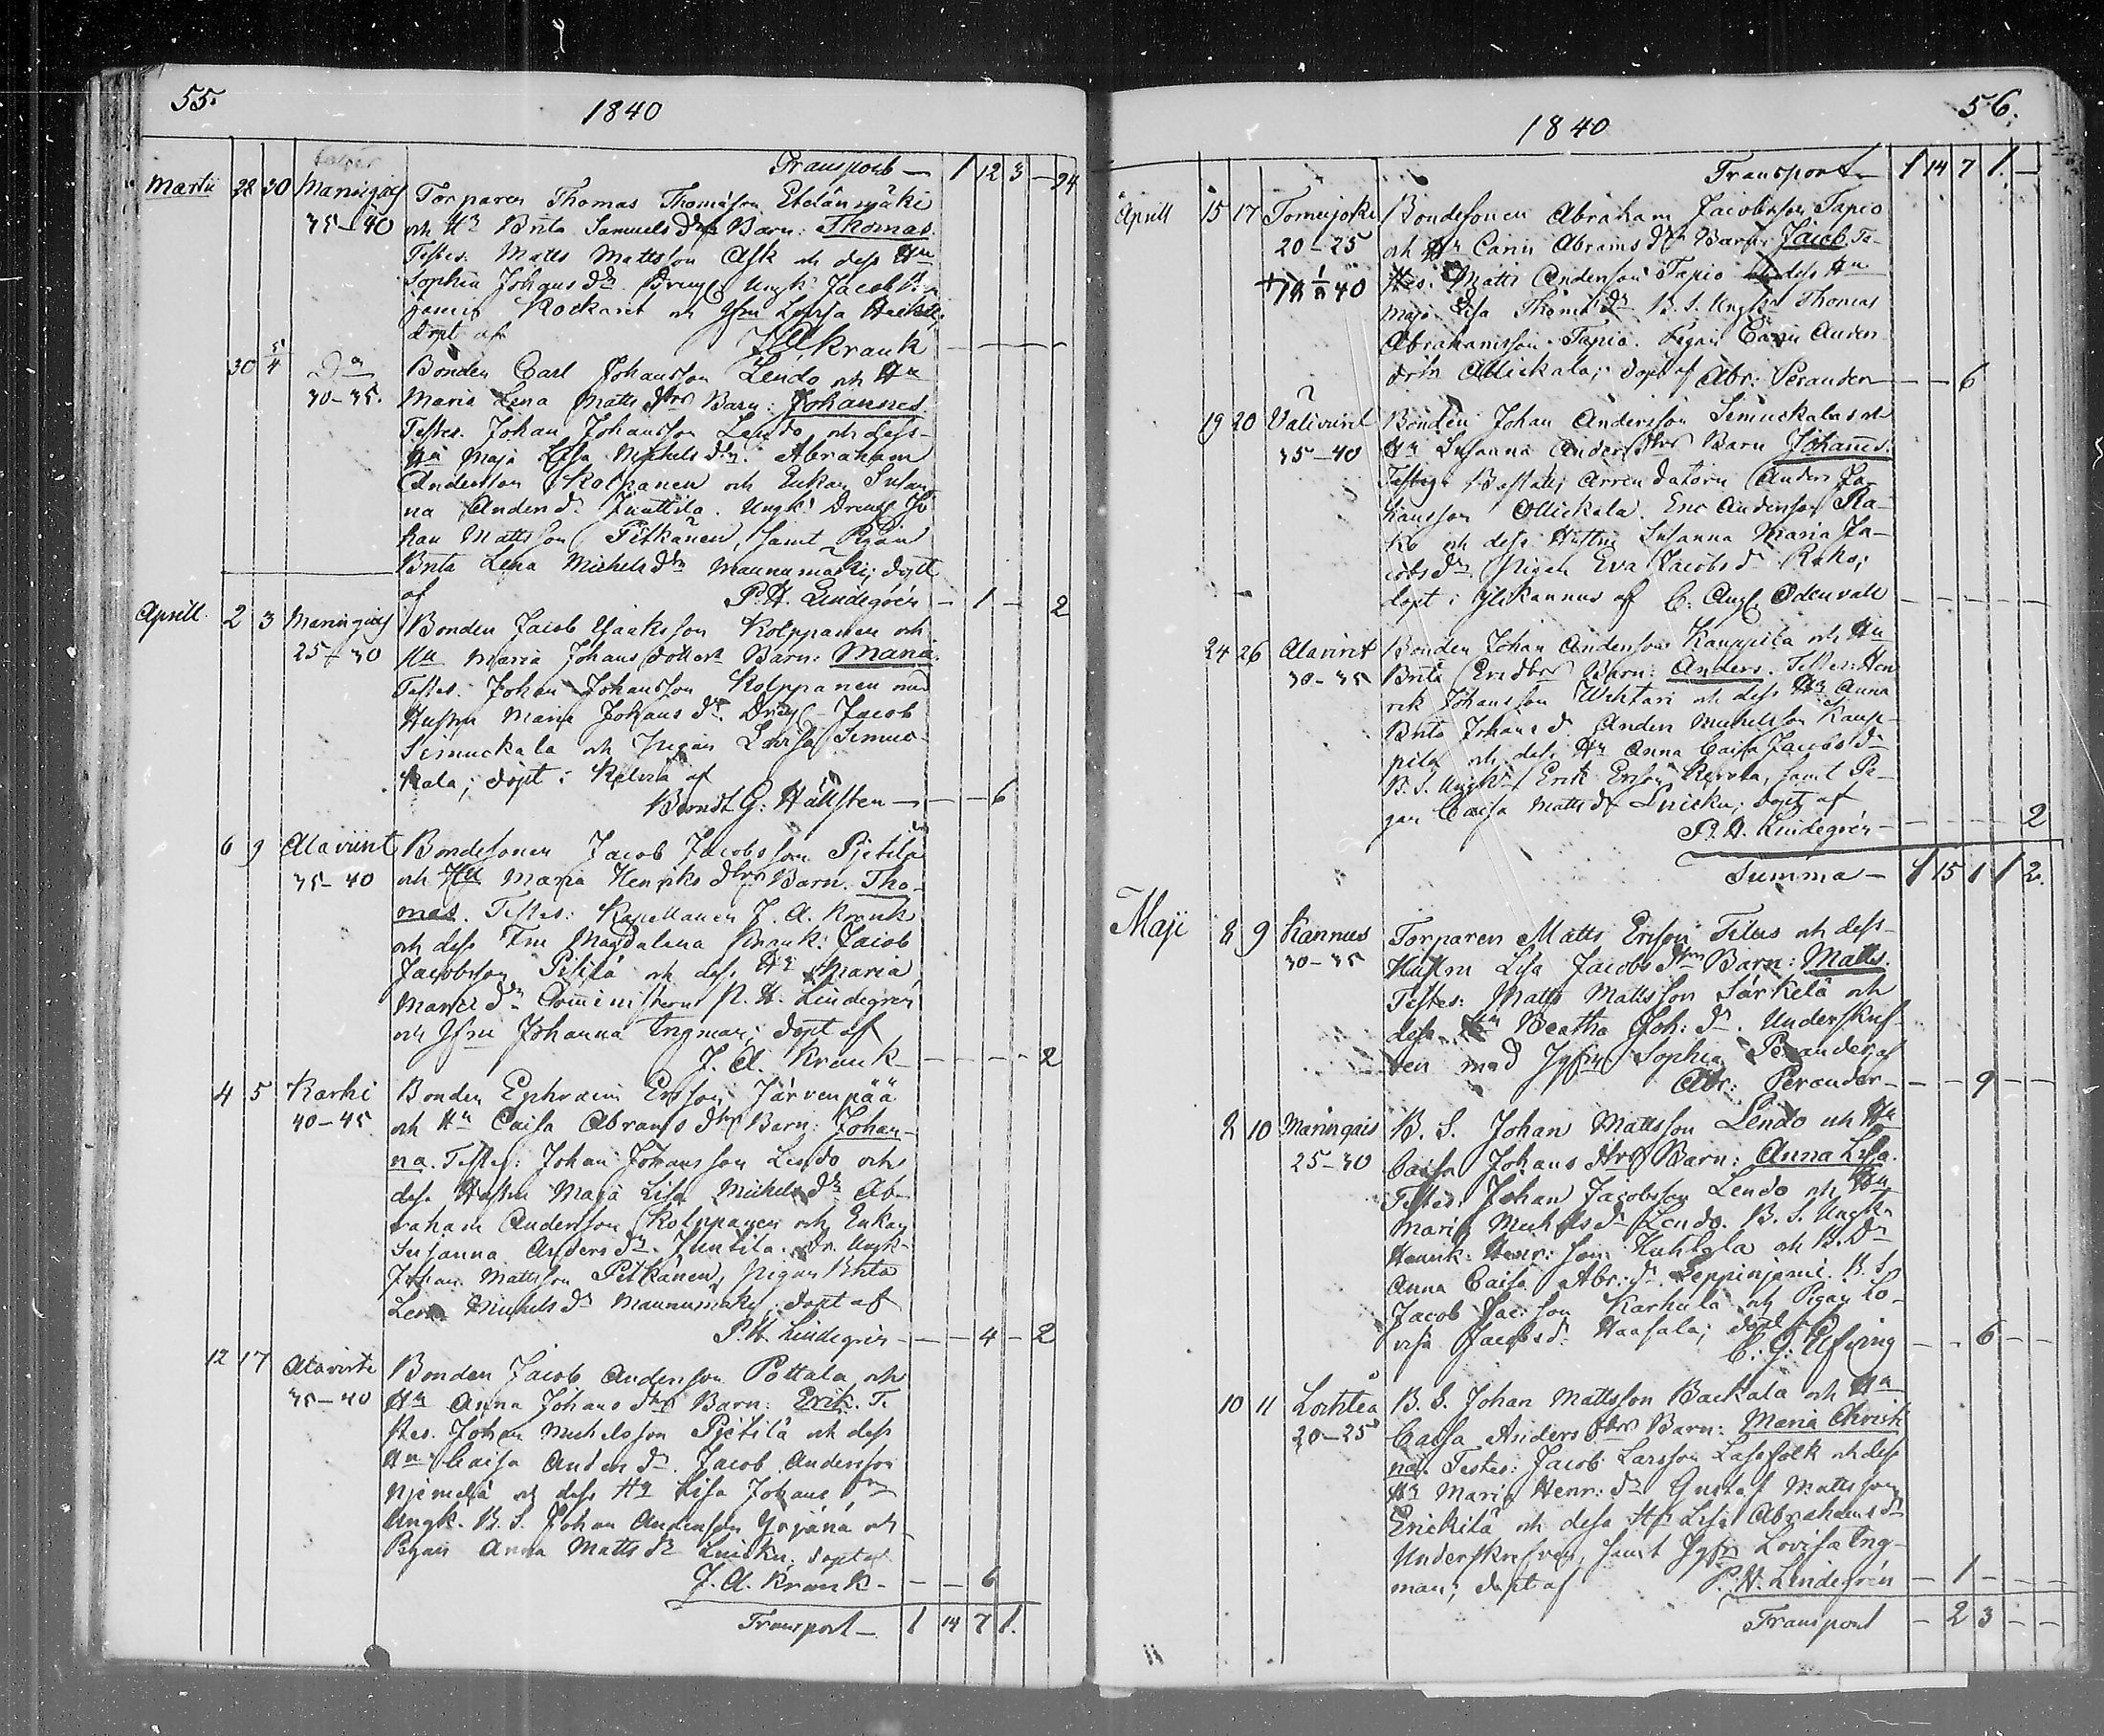 55.
1840
Transport — 1 12 3 — 24
Martii 28 30 Maringais Torparen Thomas Thomasson Etelänmäki
35–40 och Hu Brita Samuels dtrs Barn: Thomas.
Testes: Matts Mattsson Ask och dess Hu
Sophia Johans dr. Dreng Ungk: Jacob
Rockaret och Jfru Lovisa
döpt af J. A. Krank
30 5/4 Do Bonden Carl Johansson Lendo och Hu
30–35. Maria Lena Matts dtrs Barn: Johannes.
Testes. Johan Johansson Lendo och dess
Hu Maja Lisa Michels dr. Abraham
Andersson Kolppanen och Enkan Susan
na Anders dr Junttila. Ungk. Dreng Jo
han Mattsson Pitkänen, samt Pigan
Brita Lena Michels dr Maunumäki; döpt
af P. H. Lindegrén — 1 — 2
Aprill. 2 3 Maringais Bonden Jacob Isaksson Kolppanen och
25–30 Hu Maria Johans dotters Barn: Maria.
Testes. Johan Johansson Kolppanen med
Hustru Maria Johans dr. Dreng Jacob
Simuckala och Pigan Lovisa Simuc-
kala; döpt i Kelviå af
Berndt G: Hällsten — — — 6
6 9 Alaviirt Bondesonen Jacob Jacobsson Pjetilä
35–40 och Hu Maria Henriks dtrs Barn. Tho-
mas. Testes: Kapellanen J. A. Krank
och dess Fru Magdalena Krank: Jacob
Jacobsson Pitilä och dess Hu Maria
dr Comministern P. H. Lindegren
och Jfru Johanna Ingman; döpt af
J. A. Krank — — — — 2
4 5 Karhi Bonden Ephraim Ersson Järvenpää
40–45 och Hu Caisa Abrams dtrs Barn: Johan-
na. Testes: Johan Johansson Lendo och
dess Hustru Maja Lisa Michels dr Ab-
raham Andersson Kolppanen och Enkan
Susanna Anders dr. Juntila. Dr. Ungk.
Johan Mattsson Pitkänen, Pigan Brita
Lena Michels dr Maunumäki, döpt af
P. H. Lindegrén — — 4 — 2
12 17 Alavirte Bonden Jacob Andersson Pottala och
35–40 Hu Anna Johans dtrs Barn: Erik. Te
stes. Johan Michelsson Pjetilä och dess
Hu Caisa Anders dr. Jacob Andersson
Njemelä och dess Hu Lisa Johans dr
Ungk. B. S. Johan Andersson Yrjänä och
Pigan Anna Matts dr Luicku; döpt af
J. A. Krank — — — 6
Transport — 1 14 7 1.
56.
1840
Transport — 1 14 7 1. —
Aprill 15 17 Tomujoki Bondesonen Abraham Jacobsson Tapio
20–25 och Hu Carin Abrams dtrs Barn: Jacob. Te-
stes: Matts Andersson Tapio och dess Hu
Maja Lisa Thoms dr. B. S. Ungk. Thomas
Abrahamsson Tapio. Pigan Carin Anders
dotr Ollickala; döpt af Abr: Perander — — 6
19 20 Valivirret Bonden Johan Andersson Simuckala och
35–40 Hu Susanna Anders dtrs Barn Johannes.
Testes: Boställs Arrendatorn Anders Jo
hansson Ollickala. Eric Andersson Ra-
ko och dess Hustru Susanna Maria Ja-
cobs dr. Pigan Eva Jacobs dr Rako;
döpt i Ylikannus af C: Aug. Odenvall
24 26 Alavirret Bonden Johan Andersson Kauppila och Hu
30–35 Brita Ersdtrs Barn: Anders. Testes: Hen
rik Johansson och dess Hu Anna
Brita Johans dr. Anders Michelsson Kaup-
pila och dess Hu Anna Caisa Jacobs dr
B. S. Ungk. Erik Ersson Kerola, samt Pi-
gan Caisa Matts dr Luicku; döpt af
P. H. Lindegrén — — — — 2
Summa — 1 15 1 1 2.
Maji 8 9 Kannus Torparen Matts Ersson Tilus och dess
30–35 Hustru Lisa Jacobs dtrs Barn: Matts.
Testes: Matts Mattsson Särkelä och
dess Hu Beatha Joh: dr. Underskrif-
ven med Jgfru Sophia Perander; af
Abr: Perander — — 9 — —
8 10 Maringais B. S. Johan Mattsson Lendo och Hu
25–30 Caisa Johans dtrs Barn: Anna Lisa.
Testes. Johan Jacobsson Lendo och Hu
Maria Michels dr Lendo. B. S. Ungk.
Henrik Henr: son Huhtala och B. Dr
Anna Caisa Abr: dr. Leppinjemi. B. S
Jacob Jac: son Karhula och Pigan Lo-
visa Jacobs dr. Haasala; döpt af
C: G: Elfving — — 6 — —
10 11 Lochteå B. S. Johan Mattsson Backala och Hu
20–25 Caisa Anders dtrs Barn: Maria Christi
na. Testes: Jacob Larsson Lassfolk och dess
Hu Maria Henr: dr Gustaf Mattsson
Erickilä och dess Hu Lisa Abrahams dr
Underskrefven, samt Jgfru Lovisa Ing-
man; döpt af P. H. Lindegrén — 1 — — —
Transport — 2 3 — —